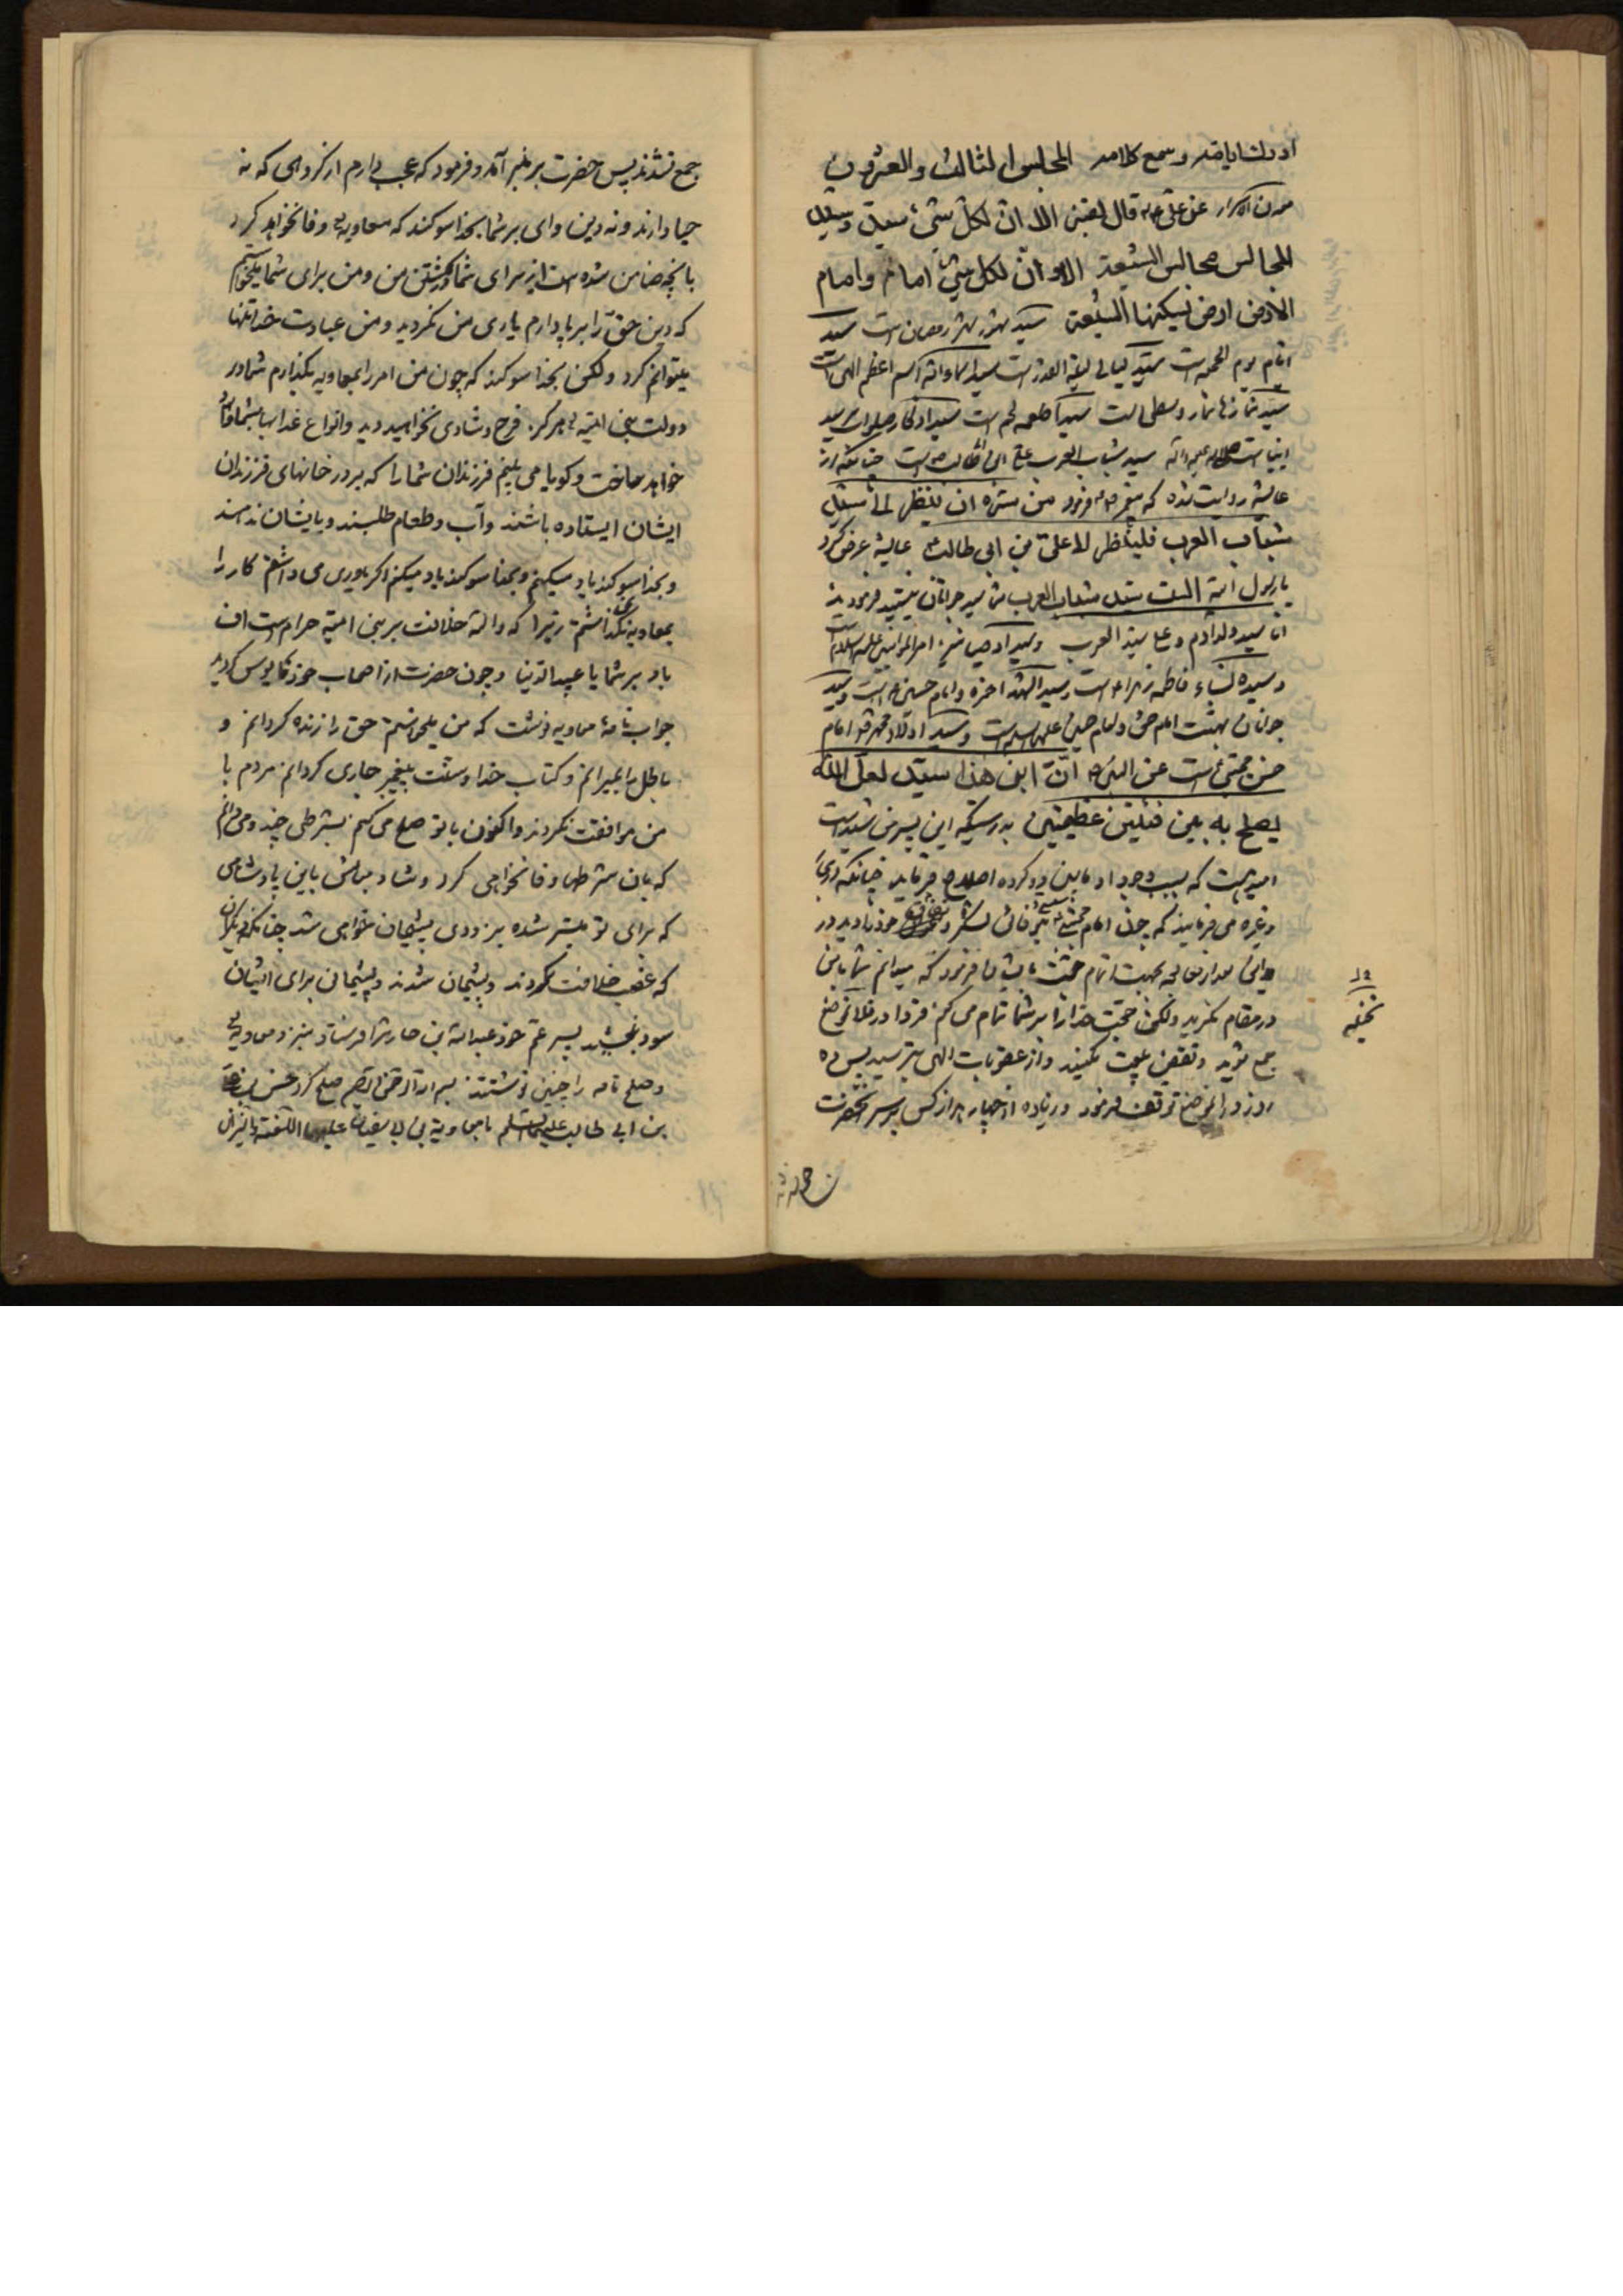 ادرك ايامه وسمع كلامه المجلس الثالث والعشرون
عن علی ع قال لقنبر الا ان لكل شیء سید وسید
المجالس مجالس الشیعة الا وان لكل شیء امام وامام
الارض ارض یسكنها الشیعة سید شهور شهر رمضان است سید
ایام یوم الجمعه است سید لیالی لیلة القدر است سید اسماء الله اسم اعظم الهی است
سید نمازها نماز وسطی است سید اطعمه لحم است سید اذكار صلوات سید
انبیا است صلی الله علیه وآله سید شباب العرب علی بن ابی طالب است چنانكه از
عایشه روایت شده كه پیغمبر فرمود من سره ان ینظر الی سید
شباب العرب فلینظر الی علی بن ابی طالب عایشه عرض كرد
یا رسول الله الست سید شباب العرب شما سید جوانان نیستید فرمودند
انا سید ولد آدم و علی سید العرب وسید اوصیا نیز امیر المؤمنین علیه السلام است
وسیدة النساء فاطمه زهراء است وسید الشهدا حمزه وامام حسین است وسید
جوانان بهشت امام حسن وامام حسین علیهما السلام است وسید اولاد امام
حسن مجتبی است عن النبی ص ان ابنی هذا سید لعل الله
یصلح به بین فئتین عظیمتین بدرستیكه این پسر من سید است
امید هست كه بسبب وجود او ما بین دو كرده اصلاح فرماید چنانكه
وغیره می فرمایند كه چون امام حسن لشكر ونفاق خود را دید در
جواب بجهت اتمام حجت بایشان فرمود كه میدانم شما با من
در مقام مكرید ولكن حجت خدا را بر شما تمام می كنم فردا در فلان موضع
جمع شوید ونقض بیعت مكنید واز عقوبات الهی بترسید پس ده
روز در انموضع توقف فرمود وزیاده از چهار هزار كس بر سر آنحضرت
نخیله
جمع نشدند پس حضرت بر منبر آمد وفرمود كه عجب دارم از كروهی كه نه
حیا دارند ونه دین وای بر شما بخدا سوكند كه معاویه وفا نخواهد كرد
بانچه ضامن شده است از برای شما در كشتن من ومن برای شما میخواستم
كه دین حق را بر پا دارم یاری من نكردید ومن عبادت خدا تنها
میتوانم كرد ولكن بخدا سوكند كه چون من امر را بمعاویه بكذارم شما در
دولت بنی امیه هركز فرح وشادی نخواهید دید وانواع عذابها بشما
خواهد ساخت وكویا می بینم فرزندان شما را كه بر در خانهای فرزندان
ایشان ایستاده باشند وآب وطعام طلبند وبایشان ندهند
وبخدا سوكند یاد میكنم وبخدا سوكند یاد میكنم اكر یاوری می داشتم كار را
بمعاویه نمیكذاشتم زیرا كه والله خلافت بر بنی امیه حرام است اف
باد بر شما یا عبید الدنیا وچون حضرت از اصحاب خود مایوس كردید
جواب نامۀ معاویه نوشت كه من میخواستم حق را زنده كردانم و
باطل را بمیرانم وكتاب خدا وسنت پیغمبر جاری كردانم مردم با
من موافقت نكردند واكنون با تو صلح می كنم بشرطی چند ومیدانم
كه بان شرطها وفا نخواهی كرد وشاد مباش باین پادشاهی
كه برای تو میسر شده بزودی پشیمان خواهی شد چنانكه دیكران
كه غصب خلافت كردند وپشیمان شدند وپشیمانی برای ایشان
سود نبخشید پس پسر عم خود عبدالله بن حارث را فرستاد بنزد معاویه
وصلح نامه را چنین نوشتند بسم الله الرحمن الرحیم صلح كرد حسن بن علی
بن ابی طالب علیهما السلم با معاویة بن ابی سفیان علیهما اللعنة والنیران